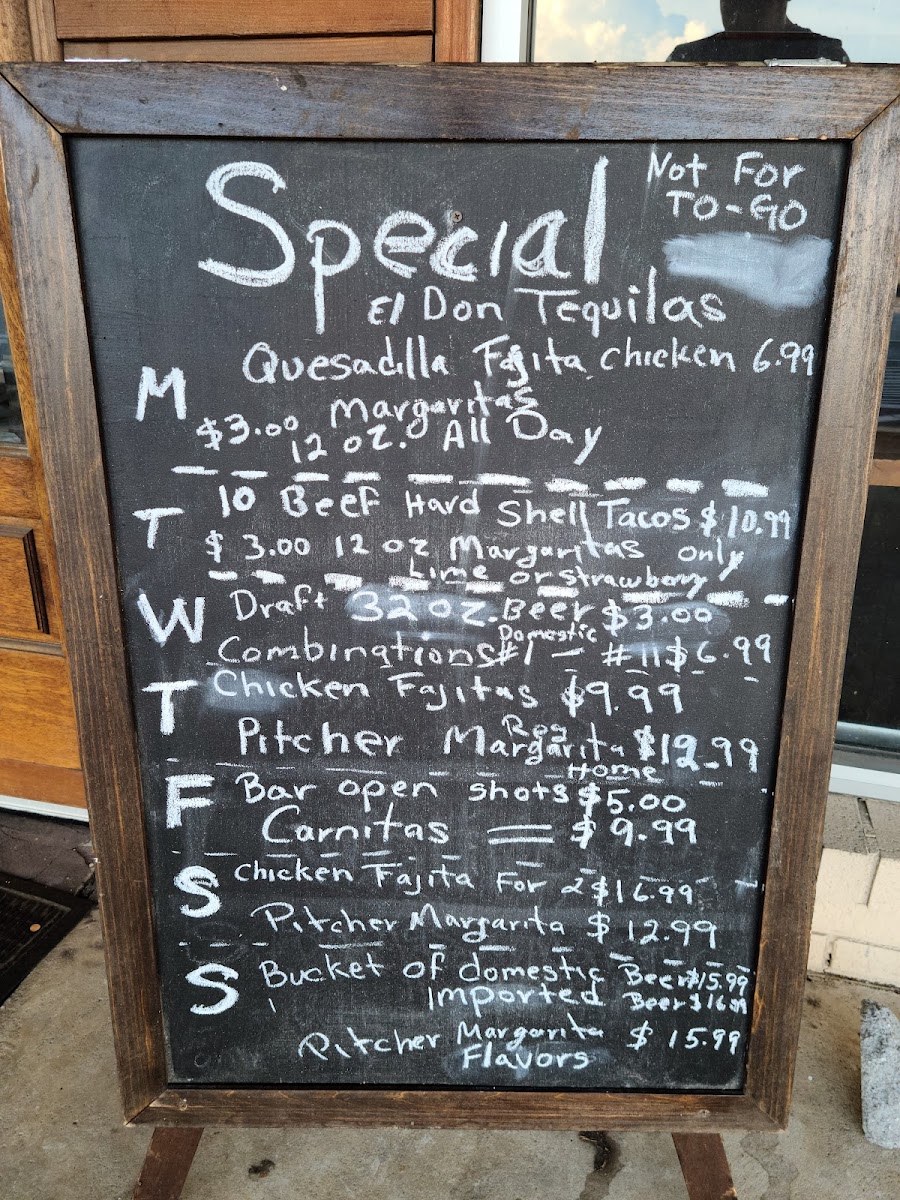 Not For
TO-GO
Special
El Don Tequilas
M
Quesadilla Fajita chicken 6.99
Margaritas
$3.00 12 oz. All Day
T
10 Beef Hard Shell Tacos $10.99
$3.00 12 oz Margaritas only
Lime or strawberry
W
Draft 32 oz. Beer $3.00
Domestic
Combinations #1 - #11 $6.99
T
Chicken Fajitas $9.99
Reg
Pitcher Margarita $12.99
Home
F
Bar open shots $5.00
Carnitas = $9.99
S
Chicken Fajita For 2 $16.99
Pitcher Margarita $12.99
S
Bucket of domestic Beer $15.99
Imported Beer $16.99
Pitcher Margarita $15.99
Flavors